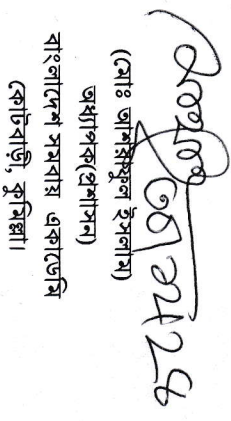 (মোঃ আশরাফুল ইসলাম)
অধ্যাপক(প্রশাসন)
বাংলাদেশ সমবায় একাডেমি
কোটবাড়ি, কুমিল্লা।